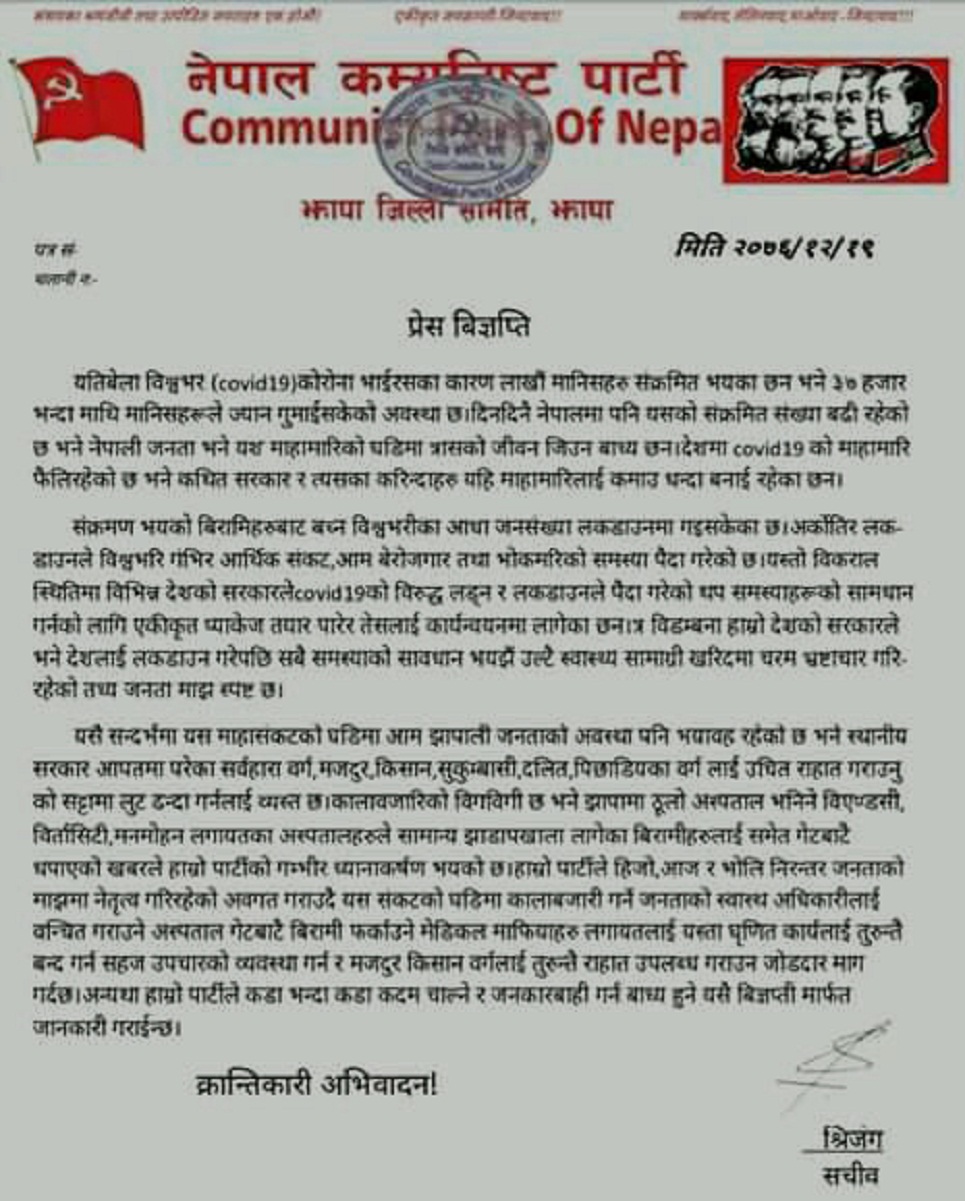 संसारका श्रमजीवी तथा उत्पीडित जनताहरु एक होऔं! एकीकृत जनक्रान्ती जिन्दावाद!! मार्क्सवाद, लेनिनवाद, माओवाद - जिन्दावाद!!!
नेपाल कम्युनिष्ट पार्टी
Communi Of Nepa
झापा जिल्ला समिति, झापा
पत्र सं- मिति २०७६/१२/१९
चलानी न:-
प्रेस बिज्ञप्ति
यतिबेला विश्वभर (covid19)कोरोना भाईरसका कारण लाखौं मानिसहरु संक्रमित भयका छन भने ३७ हजार
भन्दा माथि मानिसहरूले ज्यान गुमाईसकेको अवस्था छ।दिनदिनै नेपालमा पनि यसको संक्रमित संख्या बढी रहेको
छ भने नेपाली जनता भने यश माहामारिको घडिमा त्रासको जीवन जिउन बाध्य छन।देशमा covid19 को माहामारि
फैलिरहेको छ भने कथित सरकार र त्यसका करिन्दाहरु यहि माहामारिलाई कमाउ धन्दा बनाई रहेका छन।
संक्रमण भयको बिरामिहरुबाट बच्न विश्वभरीका आधा जनसंख्या लकडाउनमा गइसकेका छ।अर्कोतिर लक-
डाउनले विश्वभरि गंभिर आर्थिक संकट,आम बेरोजगार तथा भोकमरिको समस्या पैदा गरेको छ।यस्तो विकराल
स्थितिमा विभिन्न देशको सरकारलेcovid19को विरुद्ध लड्न र लकडाउनले पैदा गरेको थप समस्याहरूको सामधान
गर्नको लागि एकीकृत प्याकेज तयार पारेर तेसलाई कार्यन्वयनमा लागेका छन।त्र विडम्बना हाम्रो देशको सरकारले
भने देशलाई लकडाउन गरेपछि सबै समस्याको सावधान भयझैं उल्टै स्वास्थ्य सामाग्री खरिदमा चरम भ्रष्टाचार गरि-
रहेको तथ्य जनता माझ स्पष्ट छ।
यसै सन्दर्भमा यस माहासंकटको घडिमा आम झापाली जनताको अवस्था पनि भयावह रहेको छ भने स्थानीय
सरकार आपतमा परेका सर्वहारा वर्ग,मजदुर,किसान,सुकुम्बासी,दलित,पिछाडियका वर्ग लाई उचित राहात गराउनु
को सट्टामा लुट ढन्दा गर्नलाई व्यस्त छ।कालावजारिको विगविगी छ भने झापामा ठूलो अस्पताल भनिने विएण्डसी,
विर्तासिटी,मनमोहन लगायतका अस्पतालहरुले सामान्य झाडापखाला लागेका बिरामीहरुलाई समेत गेटबाटै
धपाएको खबरले हाम्रो पार्टीको गम्भीर ध्यानाकर्षण भयको छ।हाम्रो पार्टीले हिजो,आज र भोलि निरन्तर जनताको
माझमा नेतृत्व गरिरहेको अवगत गराउदै यस संकटको घडिमा कालाबजारी गर्ने जनताको स्वास्थ अधिकारीलाई
वन्चित गराउने अस्पताल गेटबाटै बिरामी फर्काउने मेडिकल माफियाहरु लगायतलाई यस्ता घृणित कार्यलाई तुरुन्तै
बन्द गर्न सहज उपचारको व्यवस्था गर्न र मजदुर किसान वर्गलाई तुरुन्तै राहात उपलब्ध गराउन जोडदार माग
गर्दछ।अन्यथा हाम्रो पार्टीले कडा भन्दा कडा कदम चाल्ने र जनकारबाही गर्न बाध्य हुने यसै बिज्ञप्ती मार्फत
जानकारी गराईन्छ।
क्रान्तिकारी अभिवादन!
श्रिजंग
सचीव